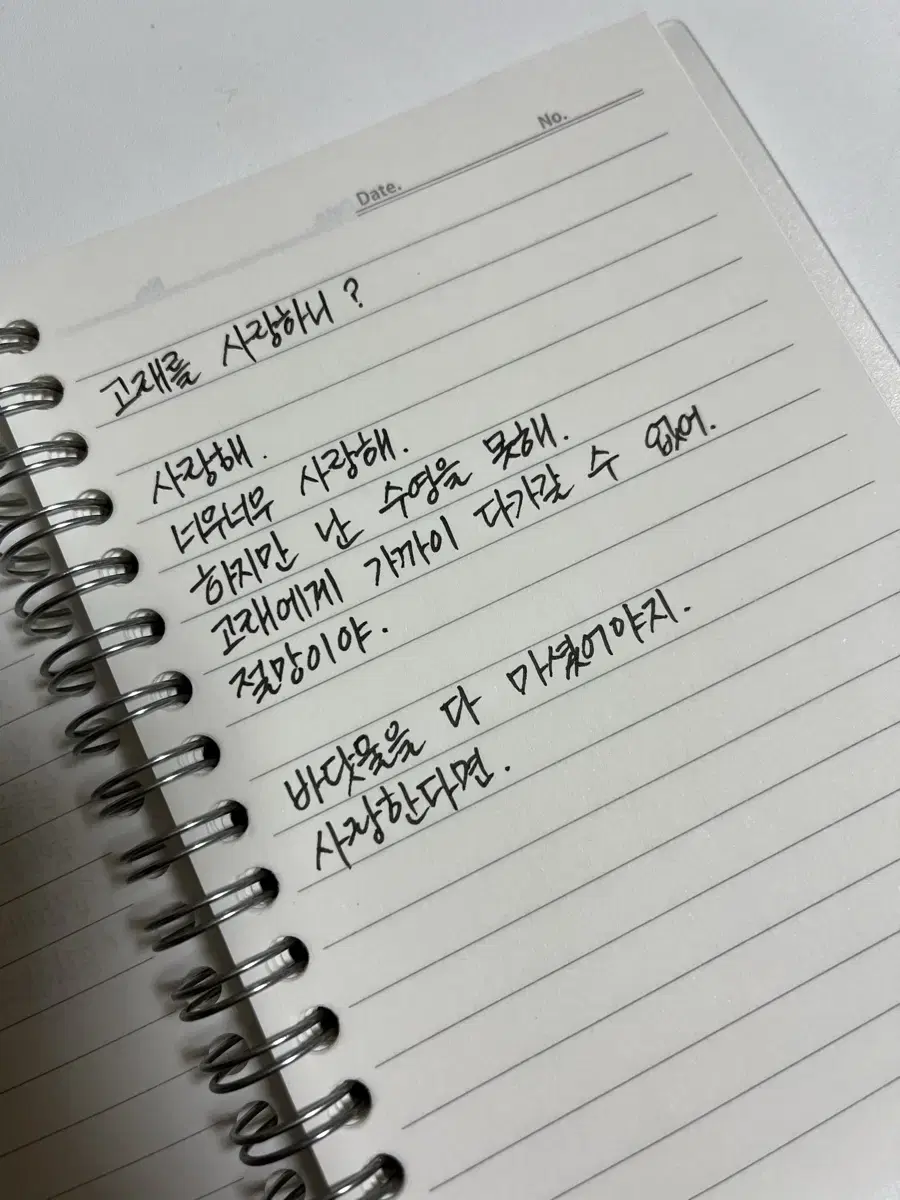 No.
Date.
고래를 사랑하니?
사랑해.
너무너무 사랑해.
하지만 난 수영을 못해.
고래에게 가까이 다가갈 수 없어.
절망이야.
바닷물을 다 마셨어야지.
사랑한다면.